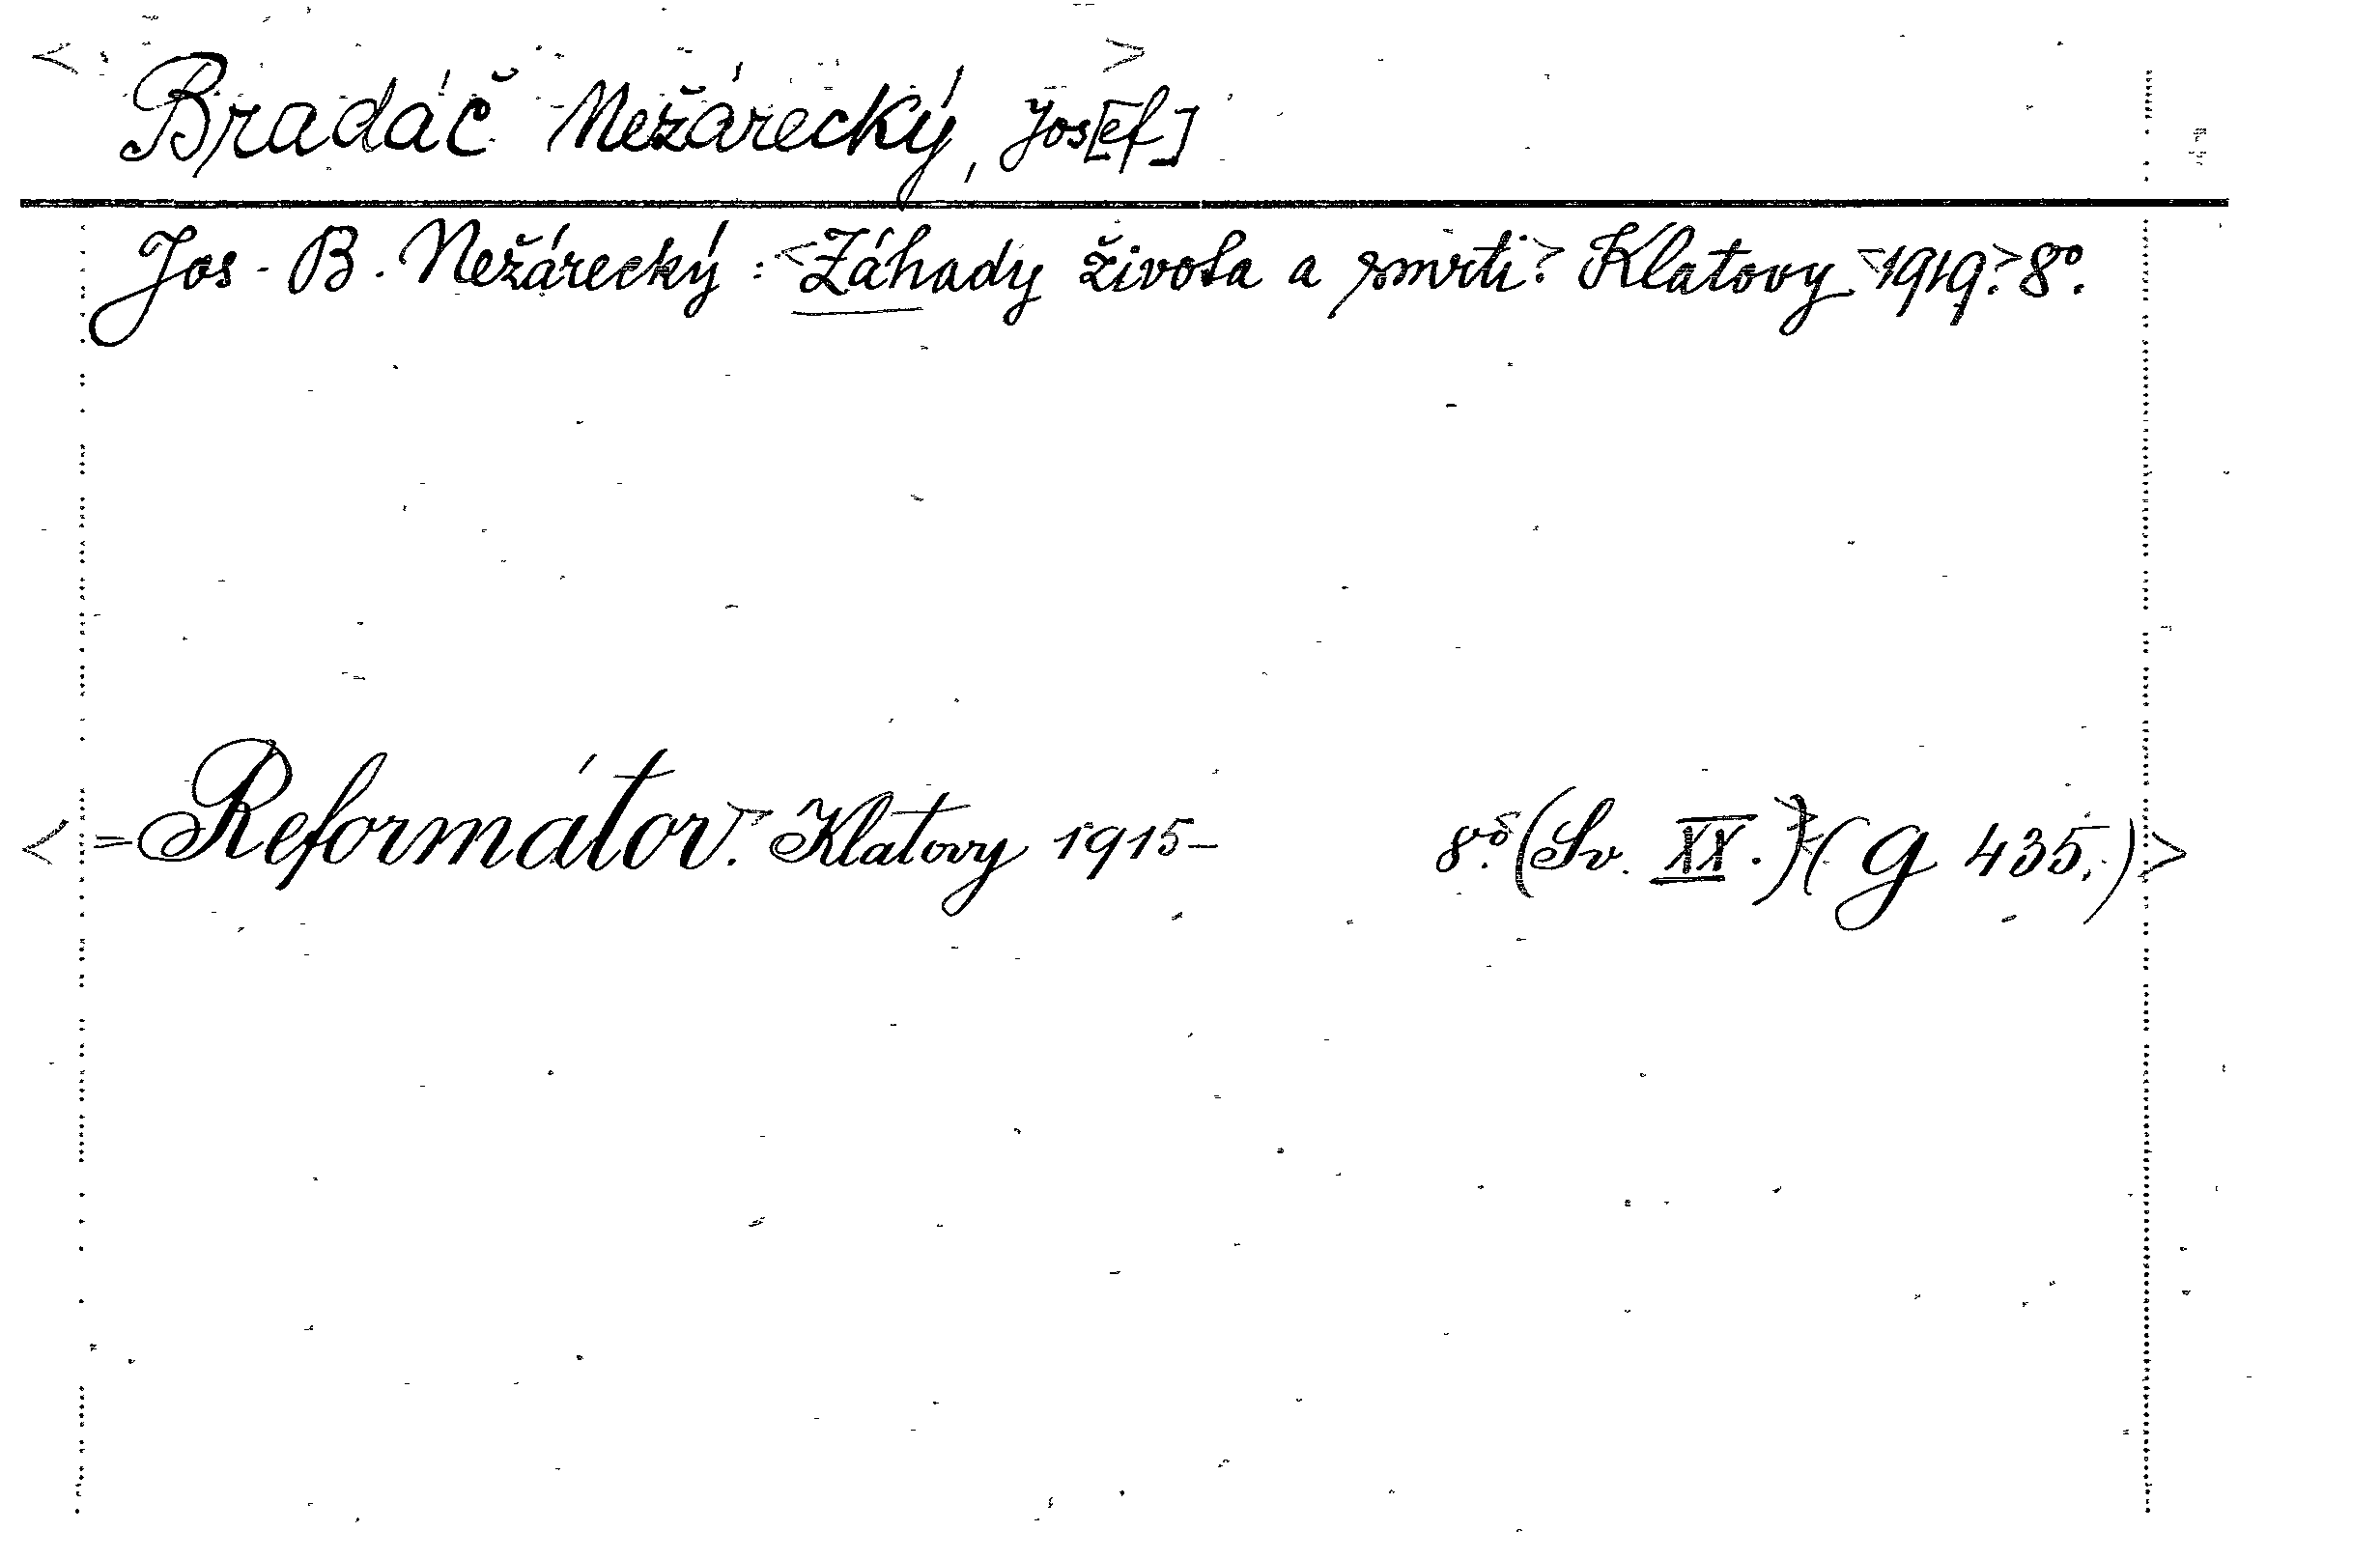 < Bradáč Nežárecký, Jos[ef] >
Jos. B. Nežárecký: <Záhady života a smrti.> Klatovy <1919.> 8°.
< = Reformátor.> Klatovy 1915- 8.° (Sv. XX.) (g 435.) >